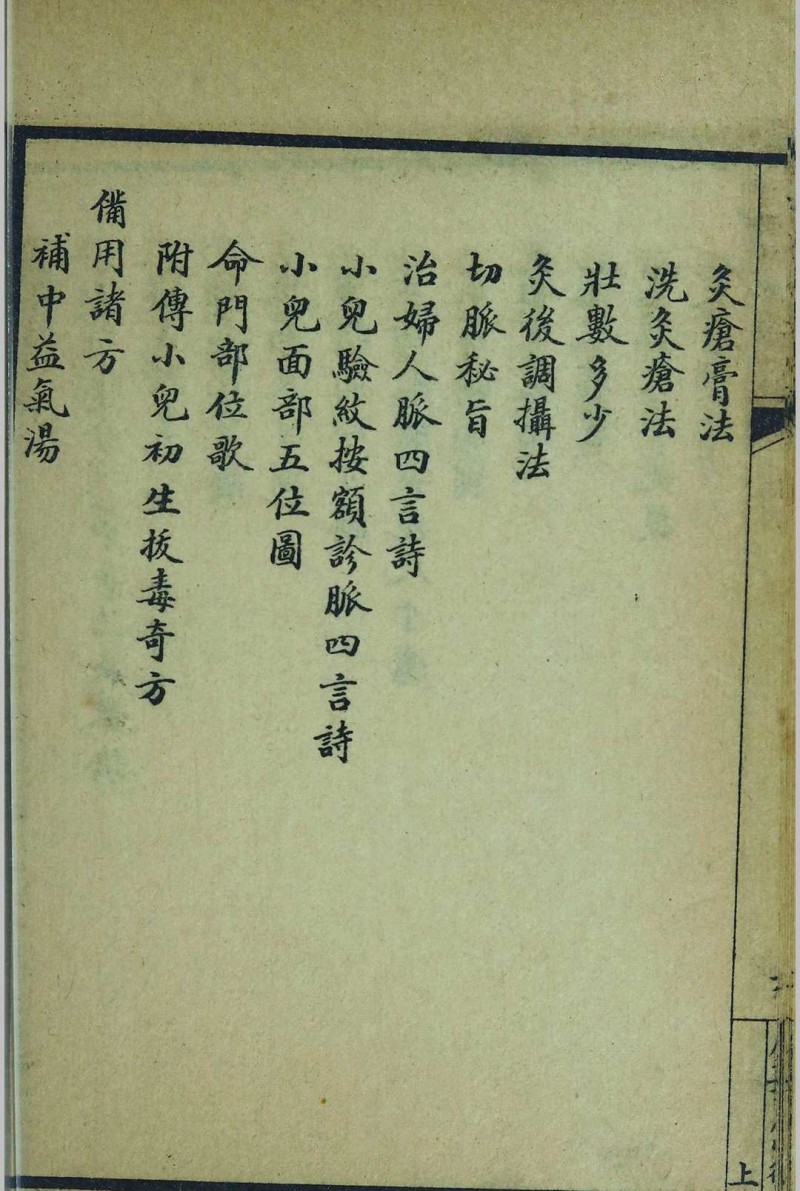 灸瘡膏法
洗灸瘡法
壯數多少
灸後調攝法
切脈秘旨
治婦人脈四言詩
小兒驗紋按額診脈四言詩
小兒面部五位圖
命門部位歌
附傳小兒初生拔毒奇方
備用諸方
補中益氣湯
上